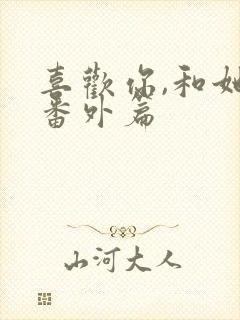 喜歡你,和她
番外篇
山河大人